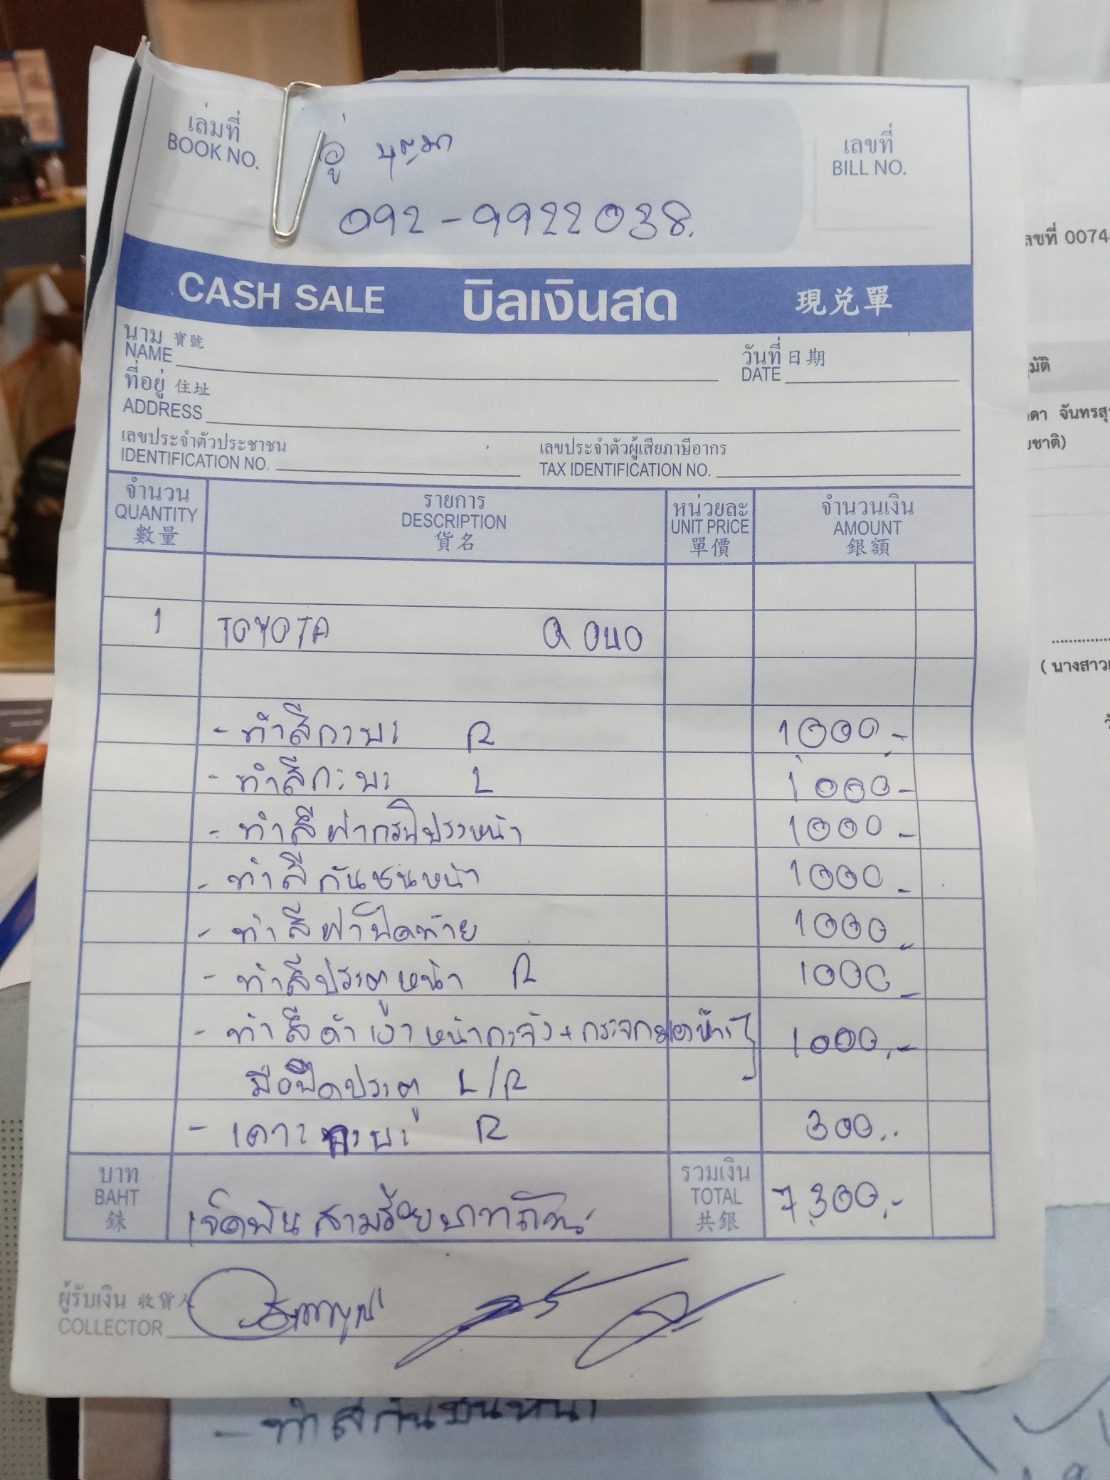 เล่มที่
BOOK NO.
อู่
092-9922038.
เลขที่
BILL NO.
CASH SALE บิลเงินสด 現兑單
นาม 寶號
NAME
วันที่ 日期
DATE
ที่อยู่ 住址
ADDRESS
เลขประจำตัวประชาชน
IDENTIFICATION NO.
เลขประจำตัวผู้เสียภาษีอากร
TAX IDENTIFICATION NO.
จำนวน
QUANTITY
數量
รายการ
DESCRIPTION
貨名
หน่วยละ
UNIT PRICE
單價
จำนวนเงิน
AMOUNT
銀額
1 TOYOTA
- ทำสีกะบะ R 1000.-
- ทำสีกะบะ L 1000-
- ทำสีฝากระโปรงหน้า 1000-
- ทำสีกันชนหน้า 1000-
- ทำสีฝาปิดท้าย 1000.-
- ทำสีประตูหน้า R 1000-
- ทำสีดำเงาหน้ากะจัง+กระจกมองข้าง 1000.-
มือปิดประตู L/R
- เคาะกะบะ R 300..
บาท
BAHT
銖
เจ็ดพันสามร้อยบาทถ้วน
รวมเงิน
TOTAL
共銀
7,300.-
ผู้รับเงิน 收貨人
COLLECTOR
ลขที่ 0074
มัติ
ดา จันทรสุ
มชาติ)
( นางสาว
- ทำสีกันชนหน้า